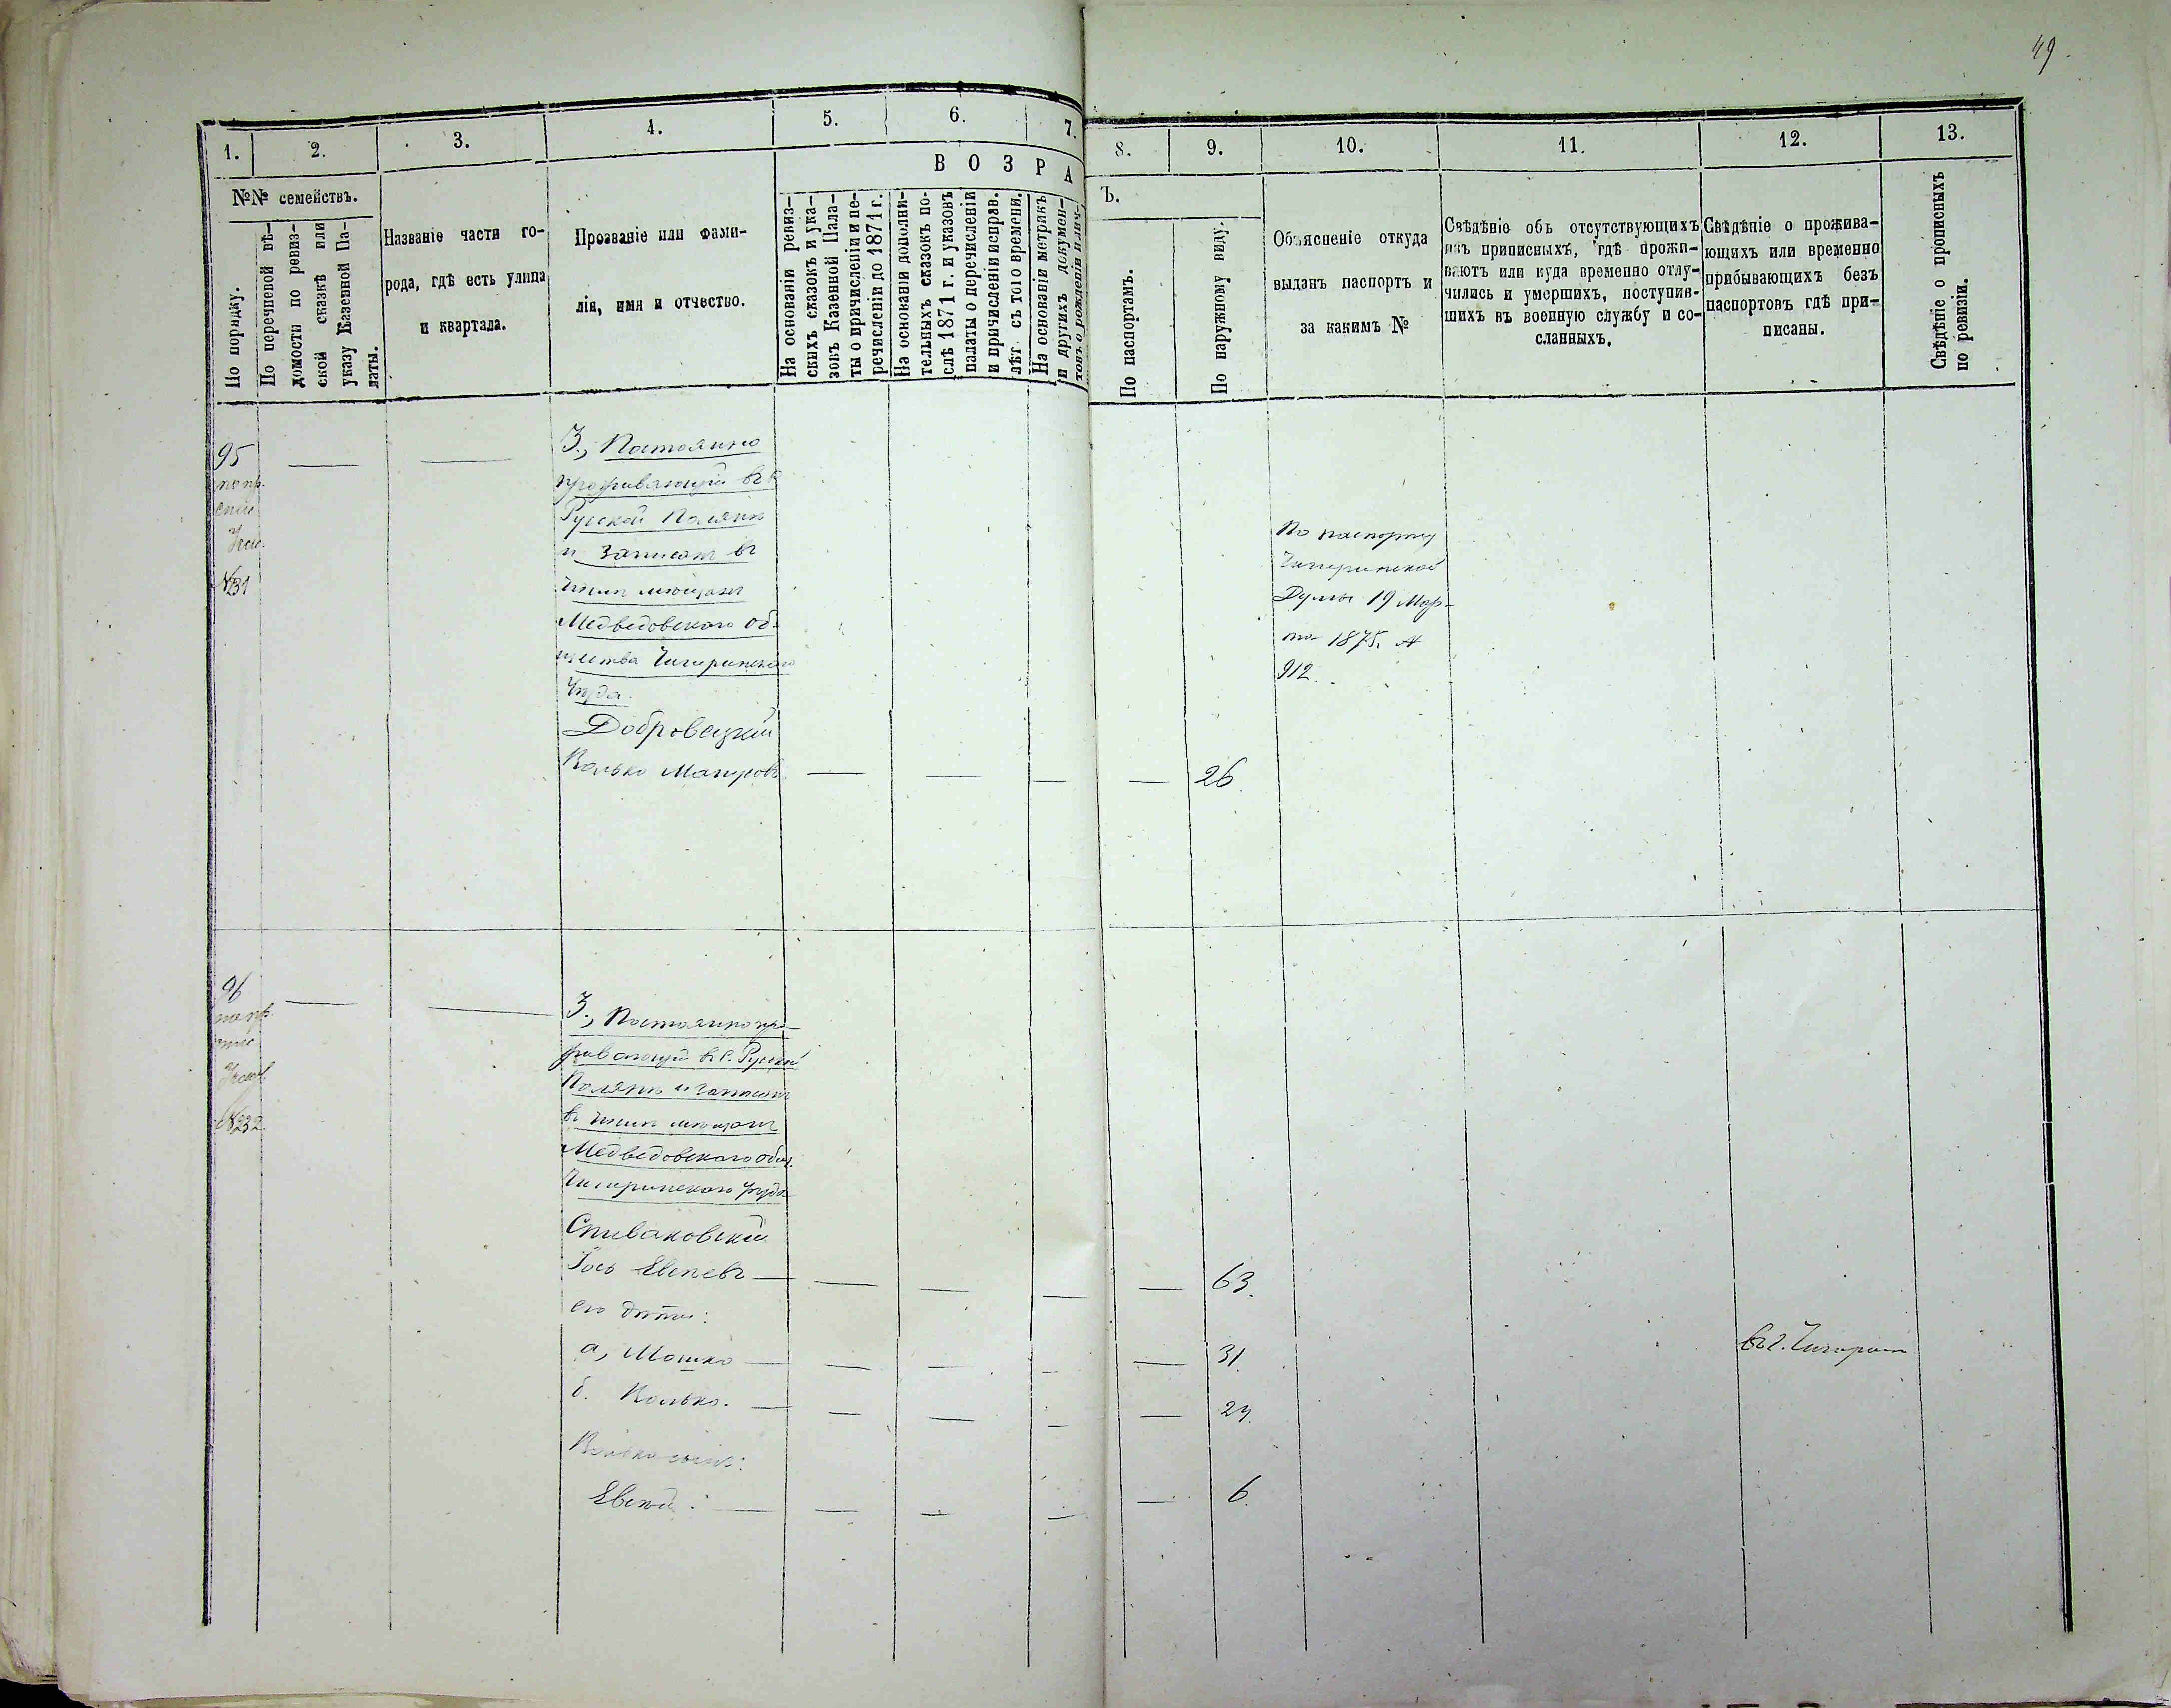 49
1.
2.
3.
4.
5.
6.
7.
8.
9.
10.
11.
12.
13.
№№ семействъ.
По порядку.
По перечневой вѣ-
домости по ревиз-
ской сказкѣ или
указу Казенной Па-
латы.
Названіе части го-
рода, гдѣ есть улица
и квартала.
Прозваніе или фами-
лія, имя и отчество.
ВОЗРА
Ъ.
На основаніи ревиз-
скихъ сказокъ и ука-
зовъ Казенной Пала-
ты о причисленіи и пе-
речисленіи до 1871 г.
На основаніи дополни-
тельныхъ сказокъ по-
слѣ 1871 г. и указовъ
палаты о перечисленіи
и причисленіи исправ.
лѣт съ того времени.
На основаніи метрикъ
и другихъ докумен-
товъ о рожденіи
По паспортамъ.
По наружному виду.
Объясненіе откуда
выданъ паспортъ и
за какимъ №
Свѣдѣніе объ отсутствующихъ
изъ приписныхъ, гдѣ прожи-
ваютъ или куда временно отлу-
чились и умершихъ, поступив-
шихъ въ военную службу и со-
сланныхъ.
Свѣдѣніе о прожива-
ющихъ или временно
прибывающихъ безъ
паспортовъ гдѣ при-
писаны.
Свѣдѣніе о прописныхъ
по ревизіи.
95
№31
З., Постоянно
проживающій въ с.
Русской Полянѣ
и записан въ
чинъ мѣщанъ
Медведовскаго об-
щества Чигиринскаго
Уѣзда.
Добровецкий
Волько
26.
По паспорту
Чигиринской
Думы 19 Мар-
та 1875. №
912.
96
№232
З., Постоянно про-
живающій въ с. Русской
Полянѣ и записанъ
въ чинъ мѣщанъ
Медведовскаго общ.
Чигиринскаго уѣзда
Спиваковский
Іось Евсеевъ
63.
его дѣти:
а, Мошко
31.
въ г. Чигирин
б. Волько.
Волька сынъ:
Евсей.
6.